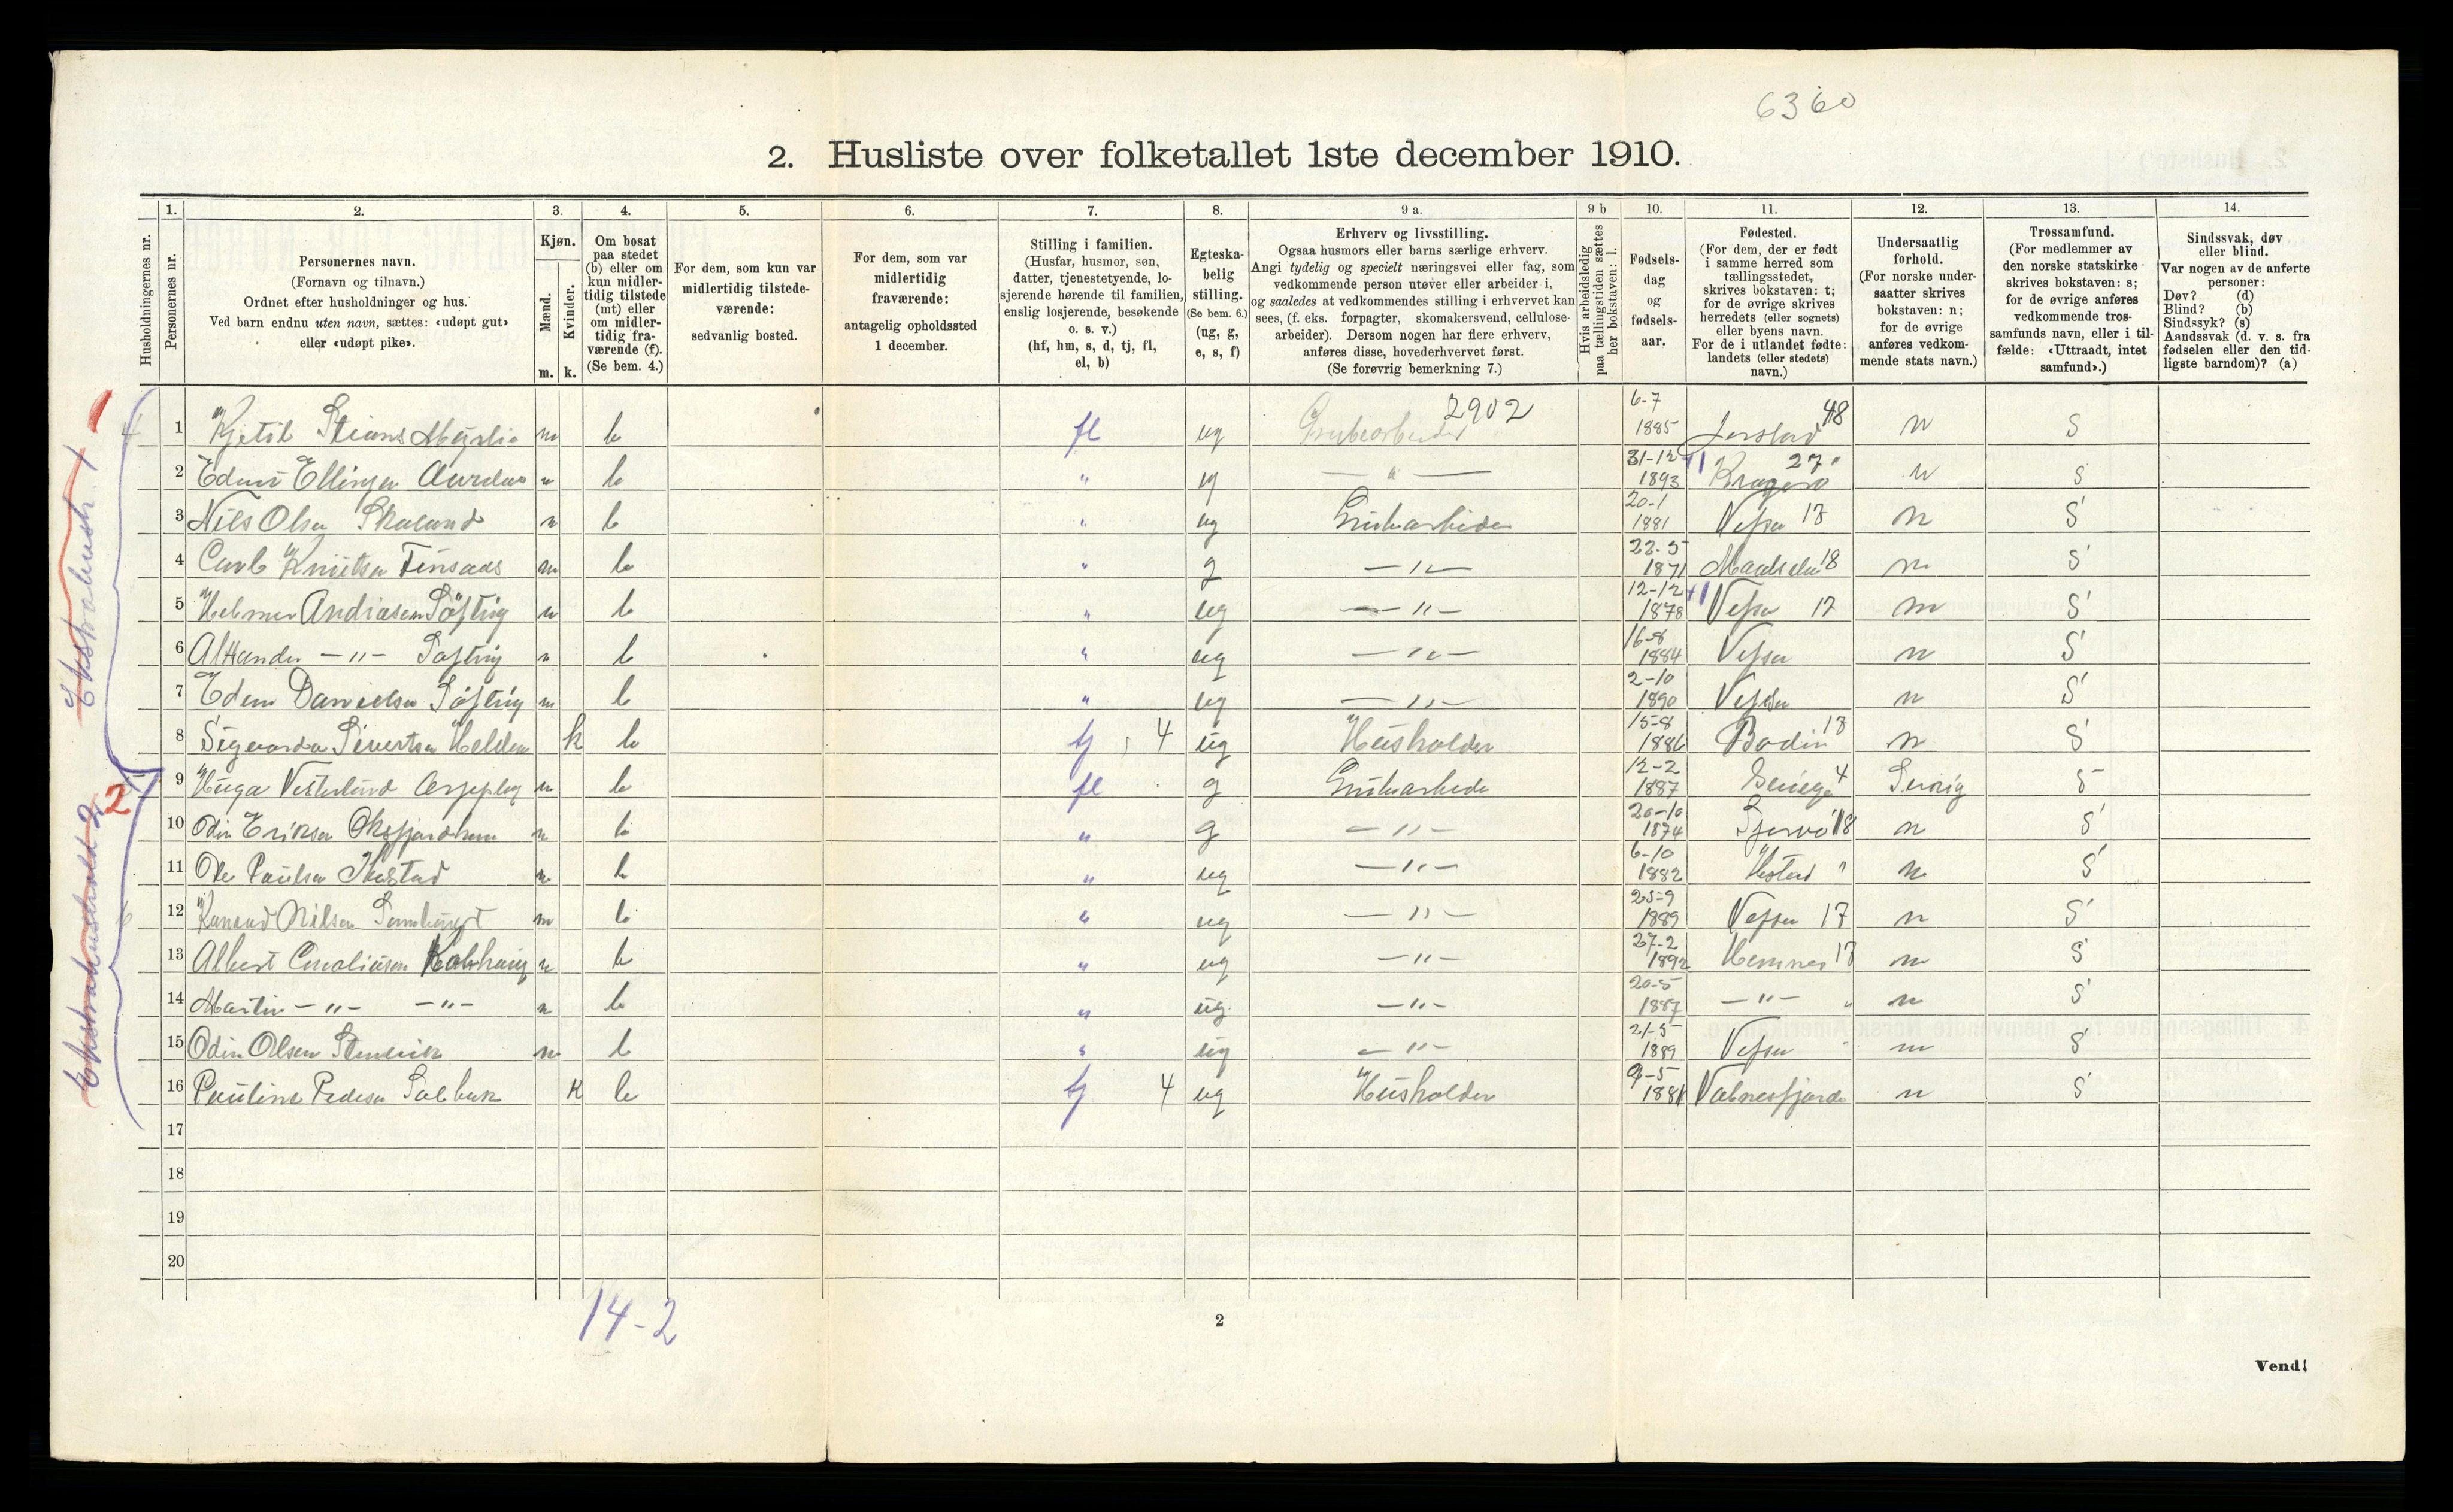 6360
2. Husliste over folketallet 1ste december 1910.
Husholdningernes nr.
1. Personernes nr.
2. Personernes navn.
(Fornavn og tilnavn.)
Ordnet efter husholdninger og hus.
Ved barn endnu uten navn, sættes: «udøpt gut»
eller «udøpt pike».
3. Kjøn.
Mænd. m.
Kvinder. k.
4. Om bosat
paa stedet
(b) eller om
kun midler-
tidig tilstede
(mt) eller
om midler-
tidig fra-
værende (f).
(Se bem. 4.)
5. For dem, som kun var
midlertidig tilstede-
værende:
sedvanlig bosted.
6. For dem, som var
midlertidig
fraværende:
antagelig opholdssted
1 december.
7. Stilling i familien.
(Husfar, husmor, søn,
datter, tjenestetyende, lo-
sjerende hørende til familien,
enslig losjerende, besøkende
o. s. v.)
(hf, hm, s, d, tj, fl,
el, b)
8. Egteska-
belig
stilling.
(Se bem. 6.)
(ug, g,
e, s, f)
9 a. Erhverv og livsstilling.
Ogsaa husmors eller barns særlige erhverv.
Angi tydelig og specielt næringsvei eller fag, som
vedkommende person utøver eller arbeider i,
og saaledes at vedkommendes stilling i erhvervet kan
sees, (f. eks. forpagter, skomakersvend, cellulose-
arbeider). Dersom nogen har flere erhverv,
anføres disse, hovederhvervet først.
(Se forøvrig bemerkning 7.)
9 b Hvis arbeidsledig
paa tællingstiden sættes
her bokstaven: l.
10. Fødsels-
dag
og
fødsels-
aar.
11. Fødested.
(For dem, der er født
i samme herred som
tællingsstedet,
skrives bokstaven: t;
for de øvrige skrives
herredets (eller sognets)
eller byens navn.
For de i utlandet fødte:
landets (eller stedets)
navn.)
12. Undersaatlig
forhold.
(For norske under-
saatter skrives
bokstaven: n;
for de øvrige
anføres vedkom-
mende stats navn.)
13. Trossamfund.
(For medlemmer av
den norske statskirke
skrives bokstaven: s;
for de øvrige anføres
vedkommende tros-
samfunds navn, eller i til-
fælde: «Uttraadt, intet
samfund».)
14. Sindssvak, døv
eller blind.
Var nogen av de anførte
personer:
Døv? (d)
Blind? (b)
Sindssyk? (s)
Aandssvak (d. v. s. fra
fødselen eller den tid-
ligste barndom)? (a)
Ekstrahush. 1
Ekstrahushold 2 2
1 Kjetil m b fl ug Grubearbeider 2902 6-7 1885 48 n S
2 Ellingsen b " ug — " — 31-12 1893 Kragerø 27 n S
3 Nils Olsen Skaland b " ug Grubearbeider 20-1 1881 Vefsn 17 n S
4 Carl Knutsen m b " g — " — 22-5 1871 18 n S
5 Helmer Andreasen Søfting b " ug — " — 12-12 1878 Vefsn 17 n S
6 — " — Søfting b " ug — " — 16-8 1884 Vefsn n S
7 Danielsen Søfting m b " ug — " — 2-10 1890 Vefsn n S
8 Sivertsen k b tj 4 ug Husholder 15-8 1886 Bodin n S
9 Vesterlund m b fl g Grubearbeide 12-2 1887 4 S
10 Odin Eriksen b " g — " — 20-10 1874 18 n S
11 Ole Paulsen b " ug — " — 6-10 1882 " n S
12 Konrad Nilsen m b " ug — " — 25-9 1889 Vefsn 17 n S
13 Albert b " ug — " — 27-2 1892 Hemnes 17 n S
14 Martin — " — — " — b " ug — " — 20-5 1887 — " — " n S
15 Odin Olsen m b " ug — " — 21-5 1889 Vefsn n S
16 Pauline k b tj 4 ug Husholder 9-5 1881 Valnesfjord n S
17
18
19
20
14-2
2
Vend!